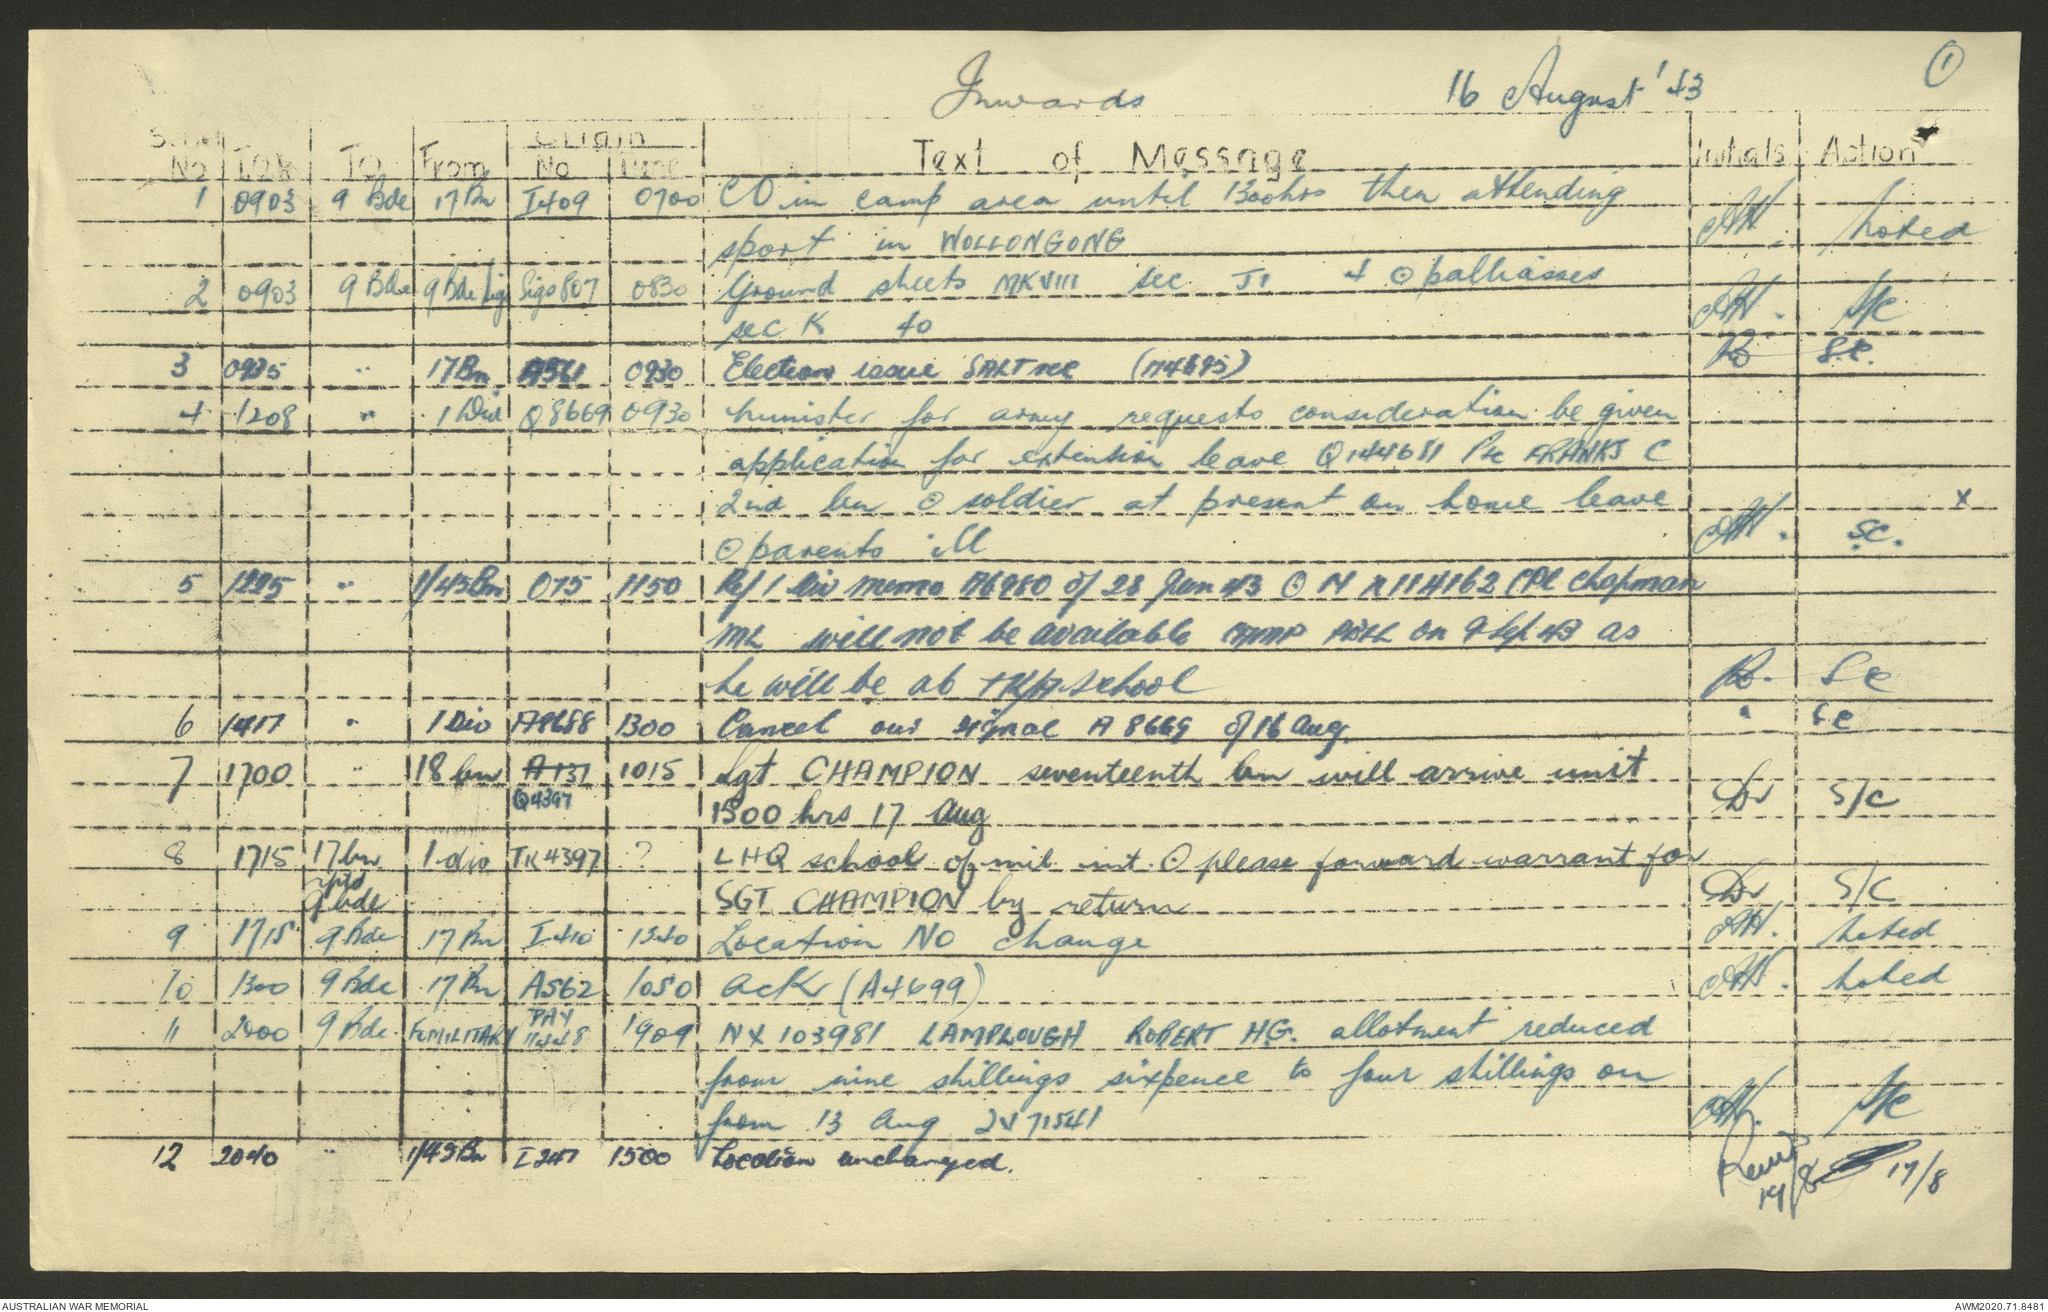 Inwards 16 August '43 1
Origin
No IOR TO From No Time Text of Message Initials Action
1 0903 9 Bde 17 Bn I409 0700 CO in camp area until 1300hrs then attending
sport in WOLLONGONG AH. noted
2 0903 9 Bde 9 Bde Sigs Sigs 807 0830 Ground sheets MKVIII sec J1 4 ⊙ palliasses
sec K 40 AH. S/C
3 0935 " 17 Bn A561 0930 Election issue (A4695) SC.
4 1208 " 1 Div Q8669 0930 minister for army requests consideration be given
application for extention leave Q144681 Pte FRANKS C
2nd bn ⊙ soldier at present on home leave x
⊙ parents ill AH. SC.
5 1225 " 1/45 Bn O75 1150 Ref 1 Div memo A6980 of 28 Jun 43 ⊙ N X114162 CPL Chapman
ML will not be available on 9 Sep 43 as
he will be at school SC
6 1417 " 1 Div A8688 1300 Cancel our signal A 8669 of 16 Aug. " SC
7 1700 " 18 bn A 137 1015 Sgt CHAMPION seventeenth bn will arrive unit
Q4397 1500 hrs 17 Aug S/C
8 1715 17 bn 1 div TK4397 ? LHQ school of mil int. ⊙ please forward warrant for
rptd 9 bde SGT CHAMPION by return S/C
9 1715 9 Bde 17 Bn I410 1340 Location NO change AH. noted
10 1300 9 Bde 17 Bn A562 1050 ack (A4699) AH. noted
11 2000 9 Bde FINMILITARY PAY 11448 1909 NX 103981 LAMPLOUGH ROBERT HG. allotment reduced
from nine shillings sixpence to four shillings on
from 13 Aug 2V71541 AH. S/C
12 2040 " 1/45 Bn I247 1500 Location unchanged.
17/8 17/8
AUSTRALIAN WAR MEMORIAL AWM2020.71.8481